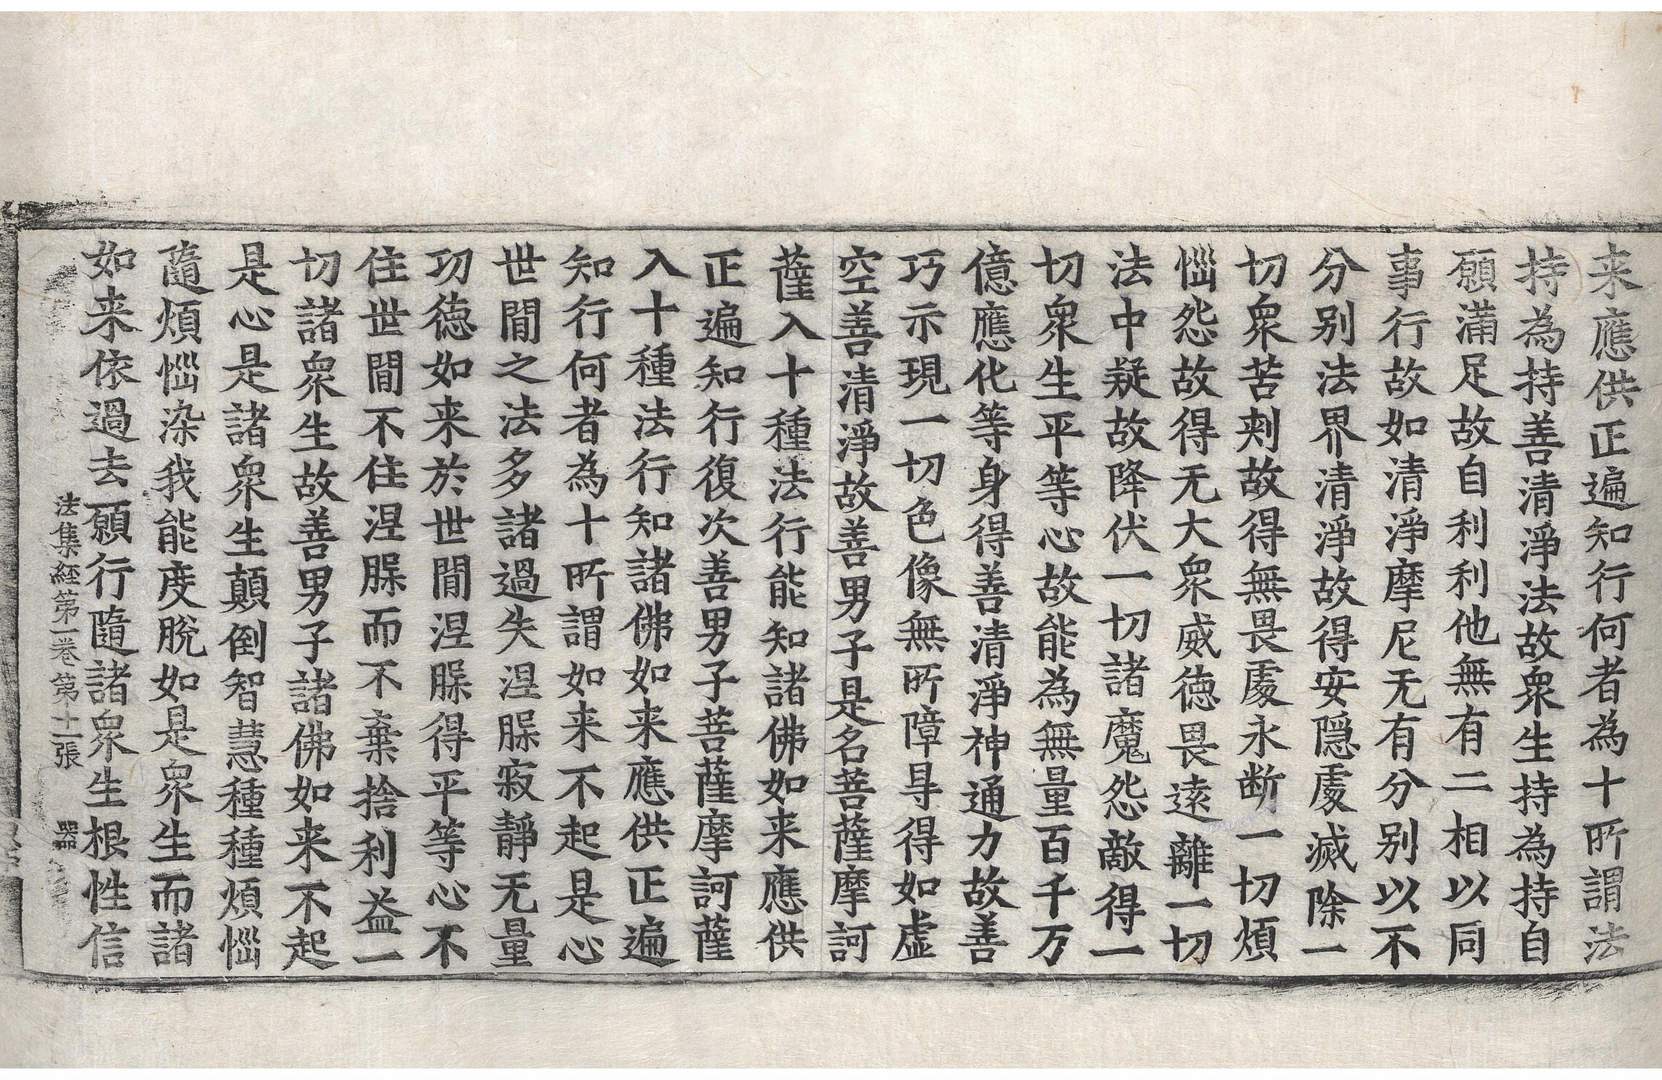 来應供正遍知行何者為十所謂法
持為持善清淨法故衆生持為持自
願滿足故自利利他無有二相以同
事行故如清淨摩尼无有分别以不
分别法界清淨故得安隱處滅除一
切衆苦刾故得無畏處永断一切煩
惱怨故得无大衆威徳畏遠離一切
法中疑故降伏一切諸魔怨敵得一
切衆生平等心故能為無量百千万
億應化等身得善清淨神通力故善
巧示現一切色像無所障㝵得如虚
空善清淨故善男子是名菩薩摩訶
薩入十種法行能知諸佛如来應供
正遍知行復次善男子菩薩摩訶薩
入十種法行知諸佛如来應供正遍
知行何者為十所謂如来不起是心
世間之法多諸過失涅槃寂靜无量
功徳如来於世間涅槃得平等心不
住世間不住涅槃而不棄捨利益一
切諸衆生故善男子諸佛如来不起
是心是諸衆生顛倒智慧種種煩惱
隨煩惱染我能度脫如是衆生而諸
如来依過去願行隨諸衆生根性信
法集經第一卷 第十一張 器